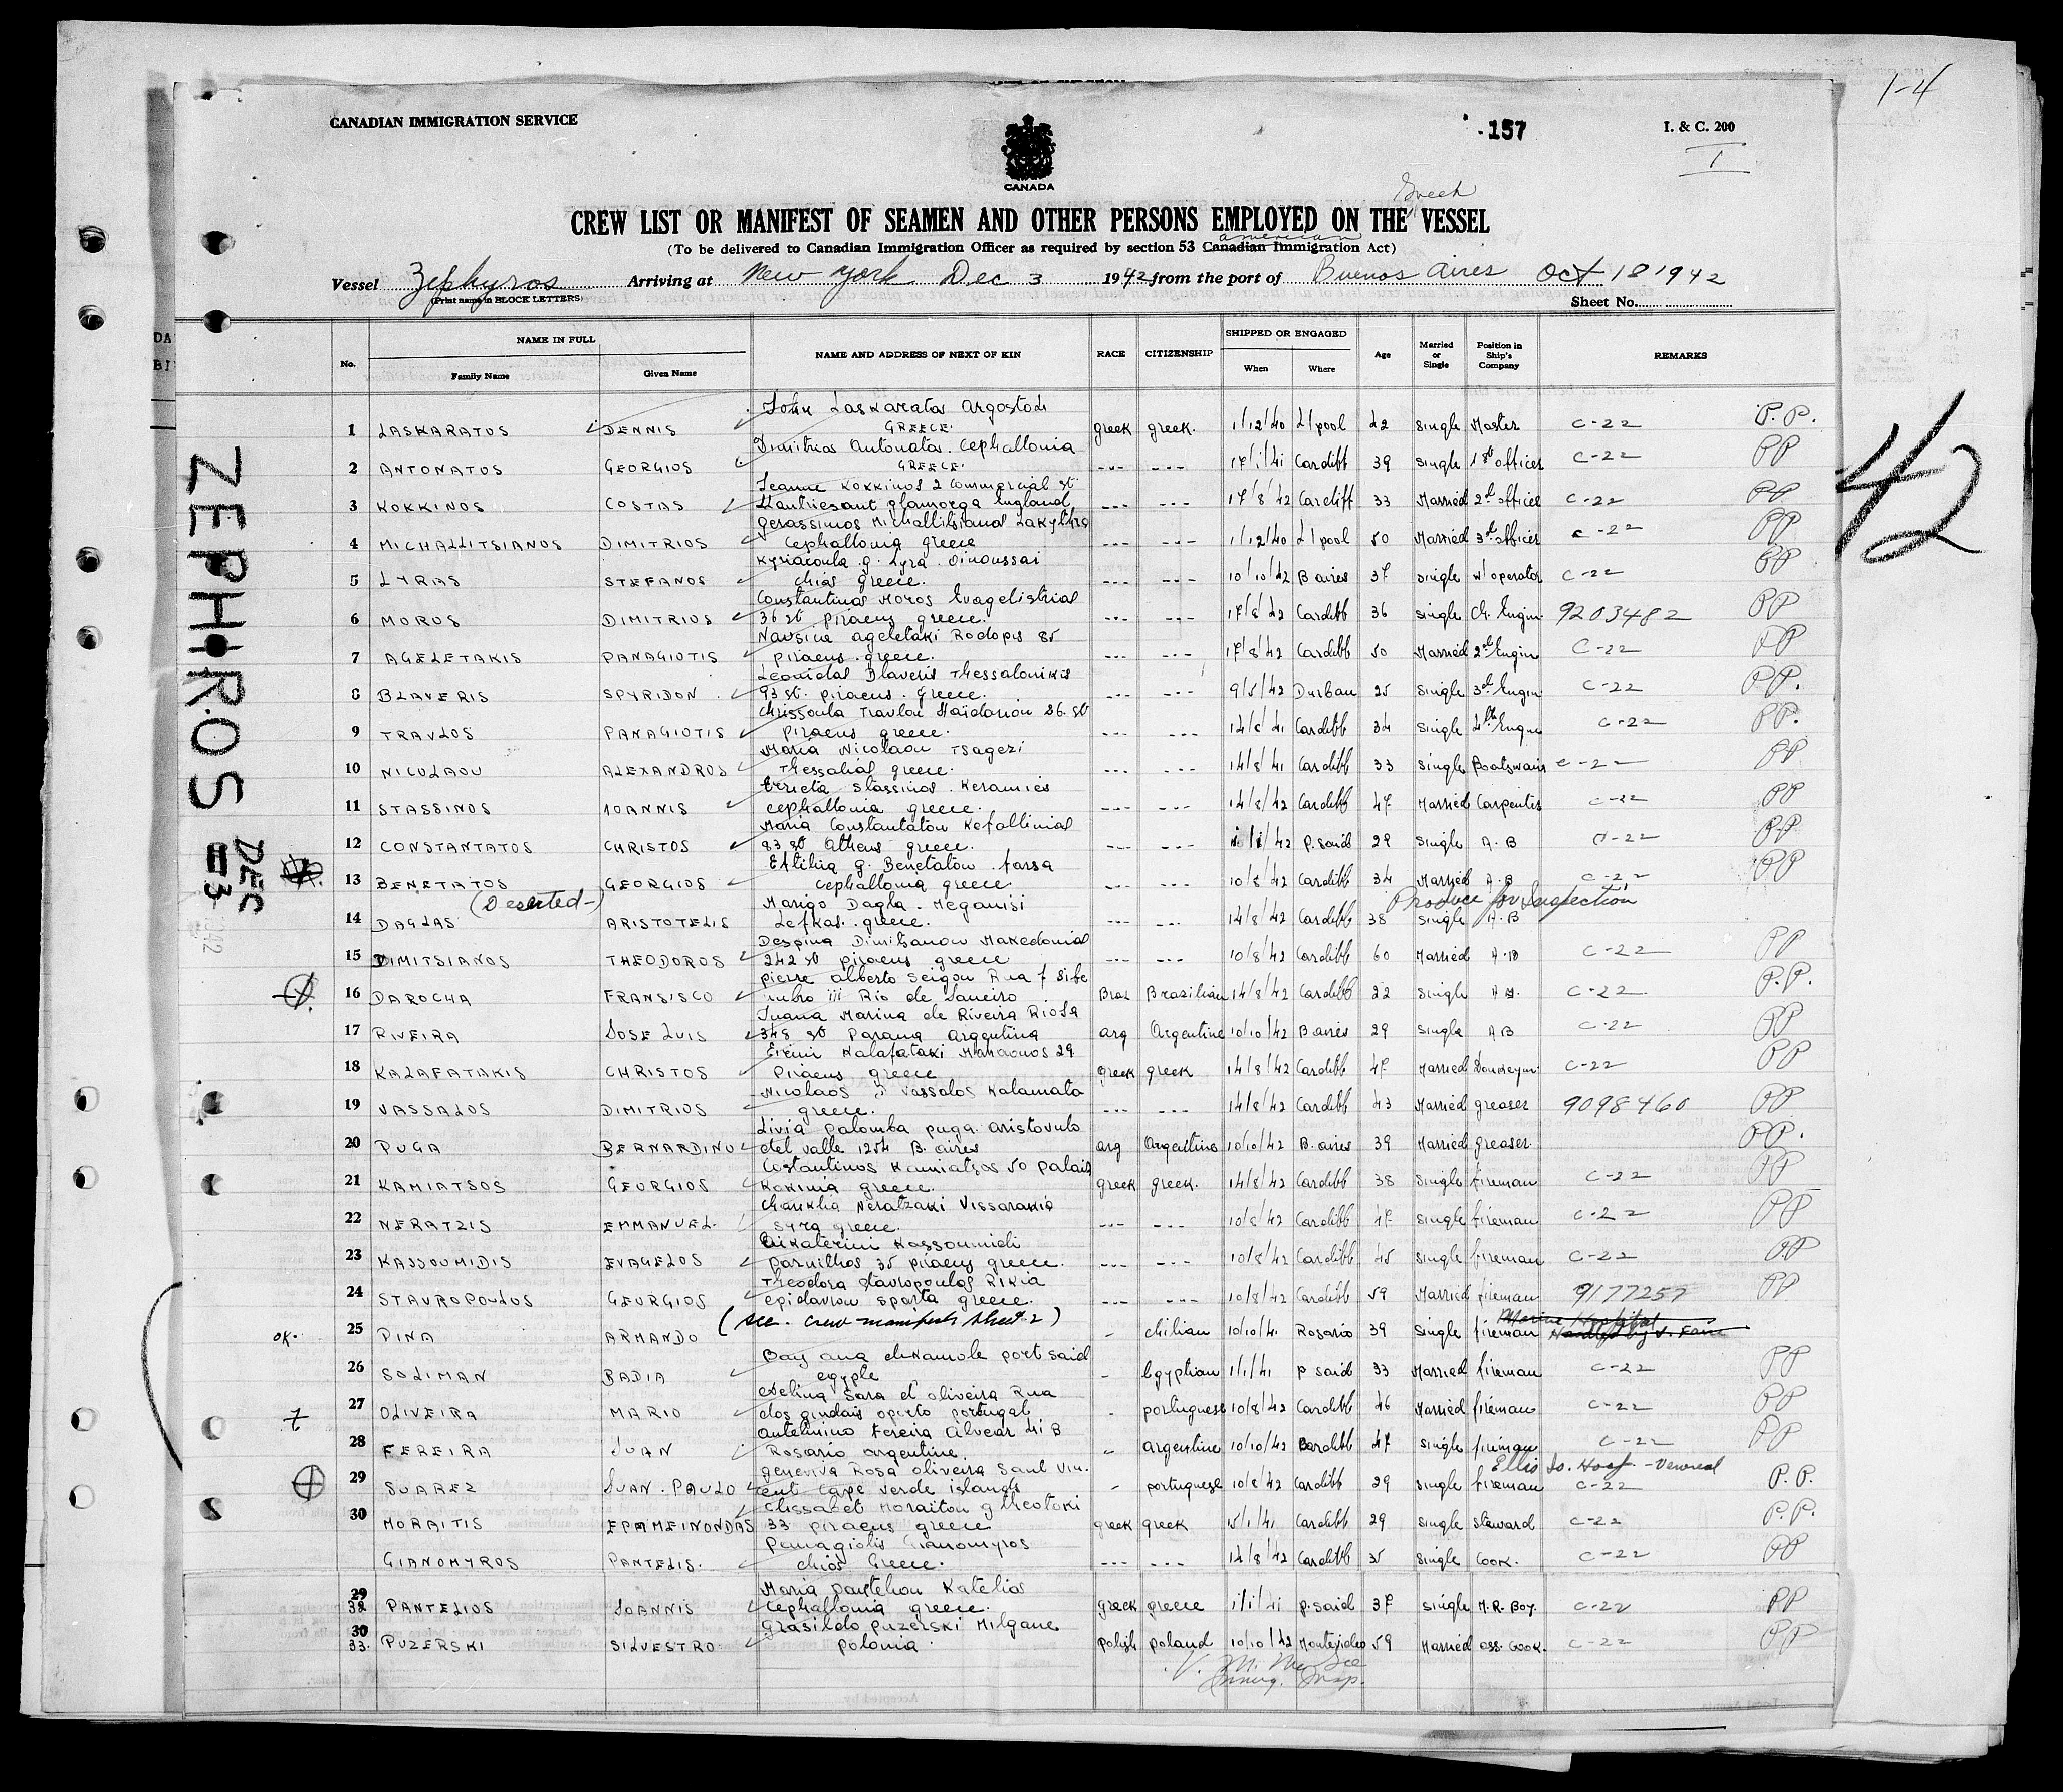 1-4
CANADIAN IMMIGRATION SERVICE
157
I. & C. 200
I
CANADA
Greek
CREW LIST OR MANIFEST OF SEAMEN AND OTHER PERSONS EMPLOYED ON THE VESSEL
american
(To be delivered to Canadian Immigration Officer as required by section 53 Canadian Immigration Act)
Vessel Zephyros Arriving at New York Dec 3 1942 from the port of Buenos Aires Oct 18 1942
(Print name in BLOCK LETTERS)
Sheet No.
No. NAME IN FULL NAME AND ADDRESS OF NEXT OF KIN RACE CITIZENSHIP SHIPPED OR ENGAGED Age Married or Single Position in Ship's Company REMARKS
Family Name Given Name When Where
John Laskaratos Argostoli
1 LASKARATOS DENNIS GREECE. greek greek. 1/12/40 L/pool 42 Single Master C-22 P.P.
Dimitrios Antonatos. Cephallonia
2 ANTONATOS GEORGIOS GREECE. --- --- 17/1/41 Cardiff 39 Single 1st officer C-22 PP
Jeanne Kokkinos 2 Commercial st.
3 KOKKINOS COSTAS Llantriesant glamorga England --- --- 17/8/42 Cardiff 33 Married 2nd officer C-22 PP
Gerassimos Michallitsianos Lakythra
4 MICHALLITSIANOS DIMITRIOS Cephallonia greece --- --- 1/12/40 L/pool 50 Married 3rd officer C-22 PP
Kyriacoula g. Lyra. Oinoussai
5 LYRAS STEFANOS chios greece. --- --- 10/10/42 B aires 37 Single W/operator C-22 PP
Constantinos Moros Evagelistrias
6 MOROS DIMITRIOS 36 st piraeus greece. --- --- 17/8/42 Cardiff 36 Single Ch. Engin. 9203482 PP
Nausica ageletaki Rodopis 85
7 AGELETAKIS PANAGIOTIS piraeus greece. --- --- 17/8/42 Cardiff 50 Married 2nd Engin C-22 PP
Leonidas Blaveris Thessalonikis
8 BLAVERIS SPYRIDON 93 st. piraeus. greece. --- --- 9/5/42 Durban 25 Single 3rd Engin C-22 PP.
Chrissoula Travlou Haidariou 36. st
9 TRAVLOS PANAGIOTIS piraeus greece. --- --- 14/8/41 Cardiff 34 Single 4th Engin C-22 PP.
Maria Nicolaou Tsagezi
10 NICOLAOU ALEXANDROS Thessalias greece. --- --- 14/8/41 Cardiff 33 Single Boatswain C-22 PP
Stassinos. Keramies
11 STASSINOS IOANNIS cephallonia greece. --- --- 14/8/42 Cardiff 47 Married Carpenter C-22 PP
Maria Constantatou Kefallinias
12 CONSTANTATOS CHRISTOS 83 st Athens greece. --- --- 42 P. said 29 Single A.B C-22 PP
Eftihia g. Benetatou. farsa
13 BENETATOS GEORGIOS cephallonia greece --- --- 10/8/42 Cardiff 34 Married A.B C-22 PP
(Deserted-) Marigo Dagla. Meganisi Produce for Inspection
14 DAGLAS ARISTOTELIS Lefkas. greece. --- --- 14/8/42 Cardiff 38 Single A.B
Despina Dimitsianou Makedonias
15 DIMITSIANOS THEODOROS 242 st piraeus greece --- --- 10/8/42 Cardiff 60 Married A.B C-22 PP
pierre alberto Seigou Rua f Sibe
16 DAROCHA FRANSISCO nubro iii Rio de Janeiro Braz Brazilian 14/8/42 Cardiff 22 Single A.B. C-22 P.P.
Juana Marina de Riveira Rioja
17 RIVEIRA JOSE LUIS 348 st Parana Argentina arg Argentine 10/10/42 B aires 29 Single AB C-22 PP
Eirini Kalafataki 29
18 KALAFATAKIS CHRISTOS Piraeus greece greek greek 14/8/42 Cardiff 47 Married Donkeym. C-22 PP
Nicolaos Vassalos Kalamata
19 VASSALOS DIMITRIOS greece. --- --- 14/8/42 Cardiff 43 Married greaser 9098460 PP
Livia palomba puga. aristovulo
20 PUGA BERNARDINO del valle 1254 B. aires arg Argentino 10/10/42 B. aires 39 Married greaser PP.
Costantinos Kamiatsos 50 palais
21 KAMIATSOS GEORGIOS Kokinia greece. greek greek. 14/8/42 Cardiff 38 Single fireman C-22 PP
Chariklia Neratzaki Vissarakia
22 NERATZIS EMMANUEL. Syra greece. --- --- 10/8/42 Cardiff 47 Single fireman C-22 PP
Aikaterini Kassoumidi
23 KASSOUMIDIS EVAGELOS 35 piraeus greece. --- --- 10/8/42 Cardiff 45 Single fireman C-22 PP
Theodora Stavropoulos Rikia
24 STAVROPOULOS GEORGIOS epidavrou sparta greece. --- --- 10/8/42 Cardiff 59 Married fireman 9177257 PP
(See. Crew manifest Sheet 2) Marine Hospital
ok. 25 PINA ARMANDO - chilian 10/10/41 Rosario 39 Single fireman
port said
26 SOLIMAN BADIA egypte - Egyptian 1/1/41 P said 33 Married fireman C-22 PP
Sara d'oliveira Rua
27 OLIVEIRA MARIO oporto portugal - portuguese 10/8/42 Cardiff 46 Married fireman C-22 PP
Fereira alvear 41 B
28 FEREIRA JUAN Rosario argentine. - argentine 10/10/42 Cardiff 47 Single fireman C-22 PP
geneviva Rosa oliveira Saul Vin. Ellis Is. Hosp. - Venereal
29 SUAREZ JUAN. PAULO ent Cape Verde islands - portuguese 10/8/42 Cardiff 29 Single fireman C-22 P.P.
Elissabet Moraitou g theotoki
30 MORAITIS EPAMEINONDAS 33 piraeus greece greek greek 15/1/41 Cardiff 29 Single Steward C-22 P.P.
Panagiotis Gianomyros
GIANOMYROS PANTELIS. chios Greece. --- --- 14/8/42 Cardiff 35 Single Cook. C-22 PP
29 Maria panteliou Katelios
32 PANTELIOS IOANNIS Cephallonia greece. greek greece 1/1/41 p. said 37 Single M.R. Boy. C-22 PP
30 Grasildo Puzerski Milgane
33. PUZERSKI SILVESTRO polonia. polish poland 10/10/42 Montevideo 59 Married ass. Cook. C-22 PP
Immig. Insp.
ZEPHYROS
DEC
3
42